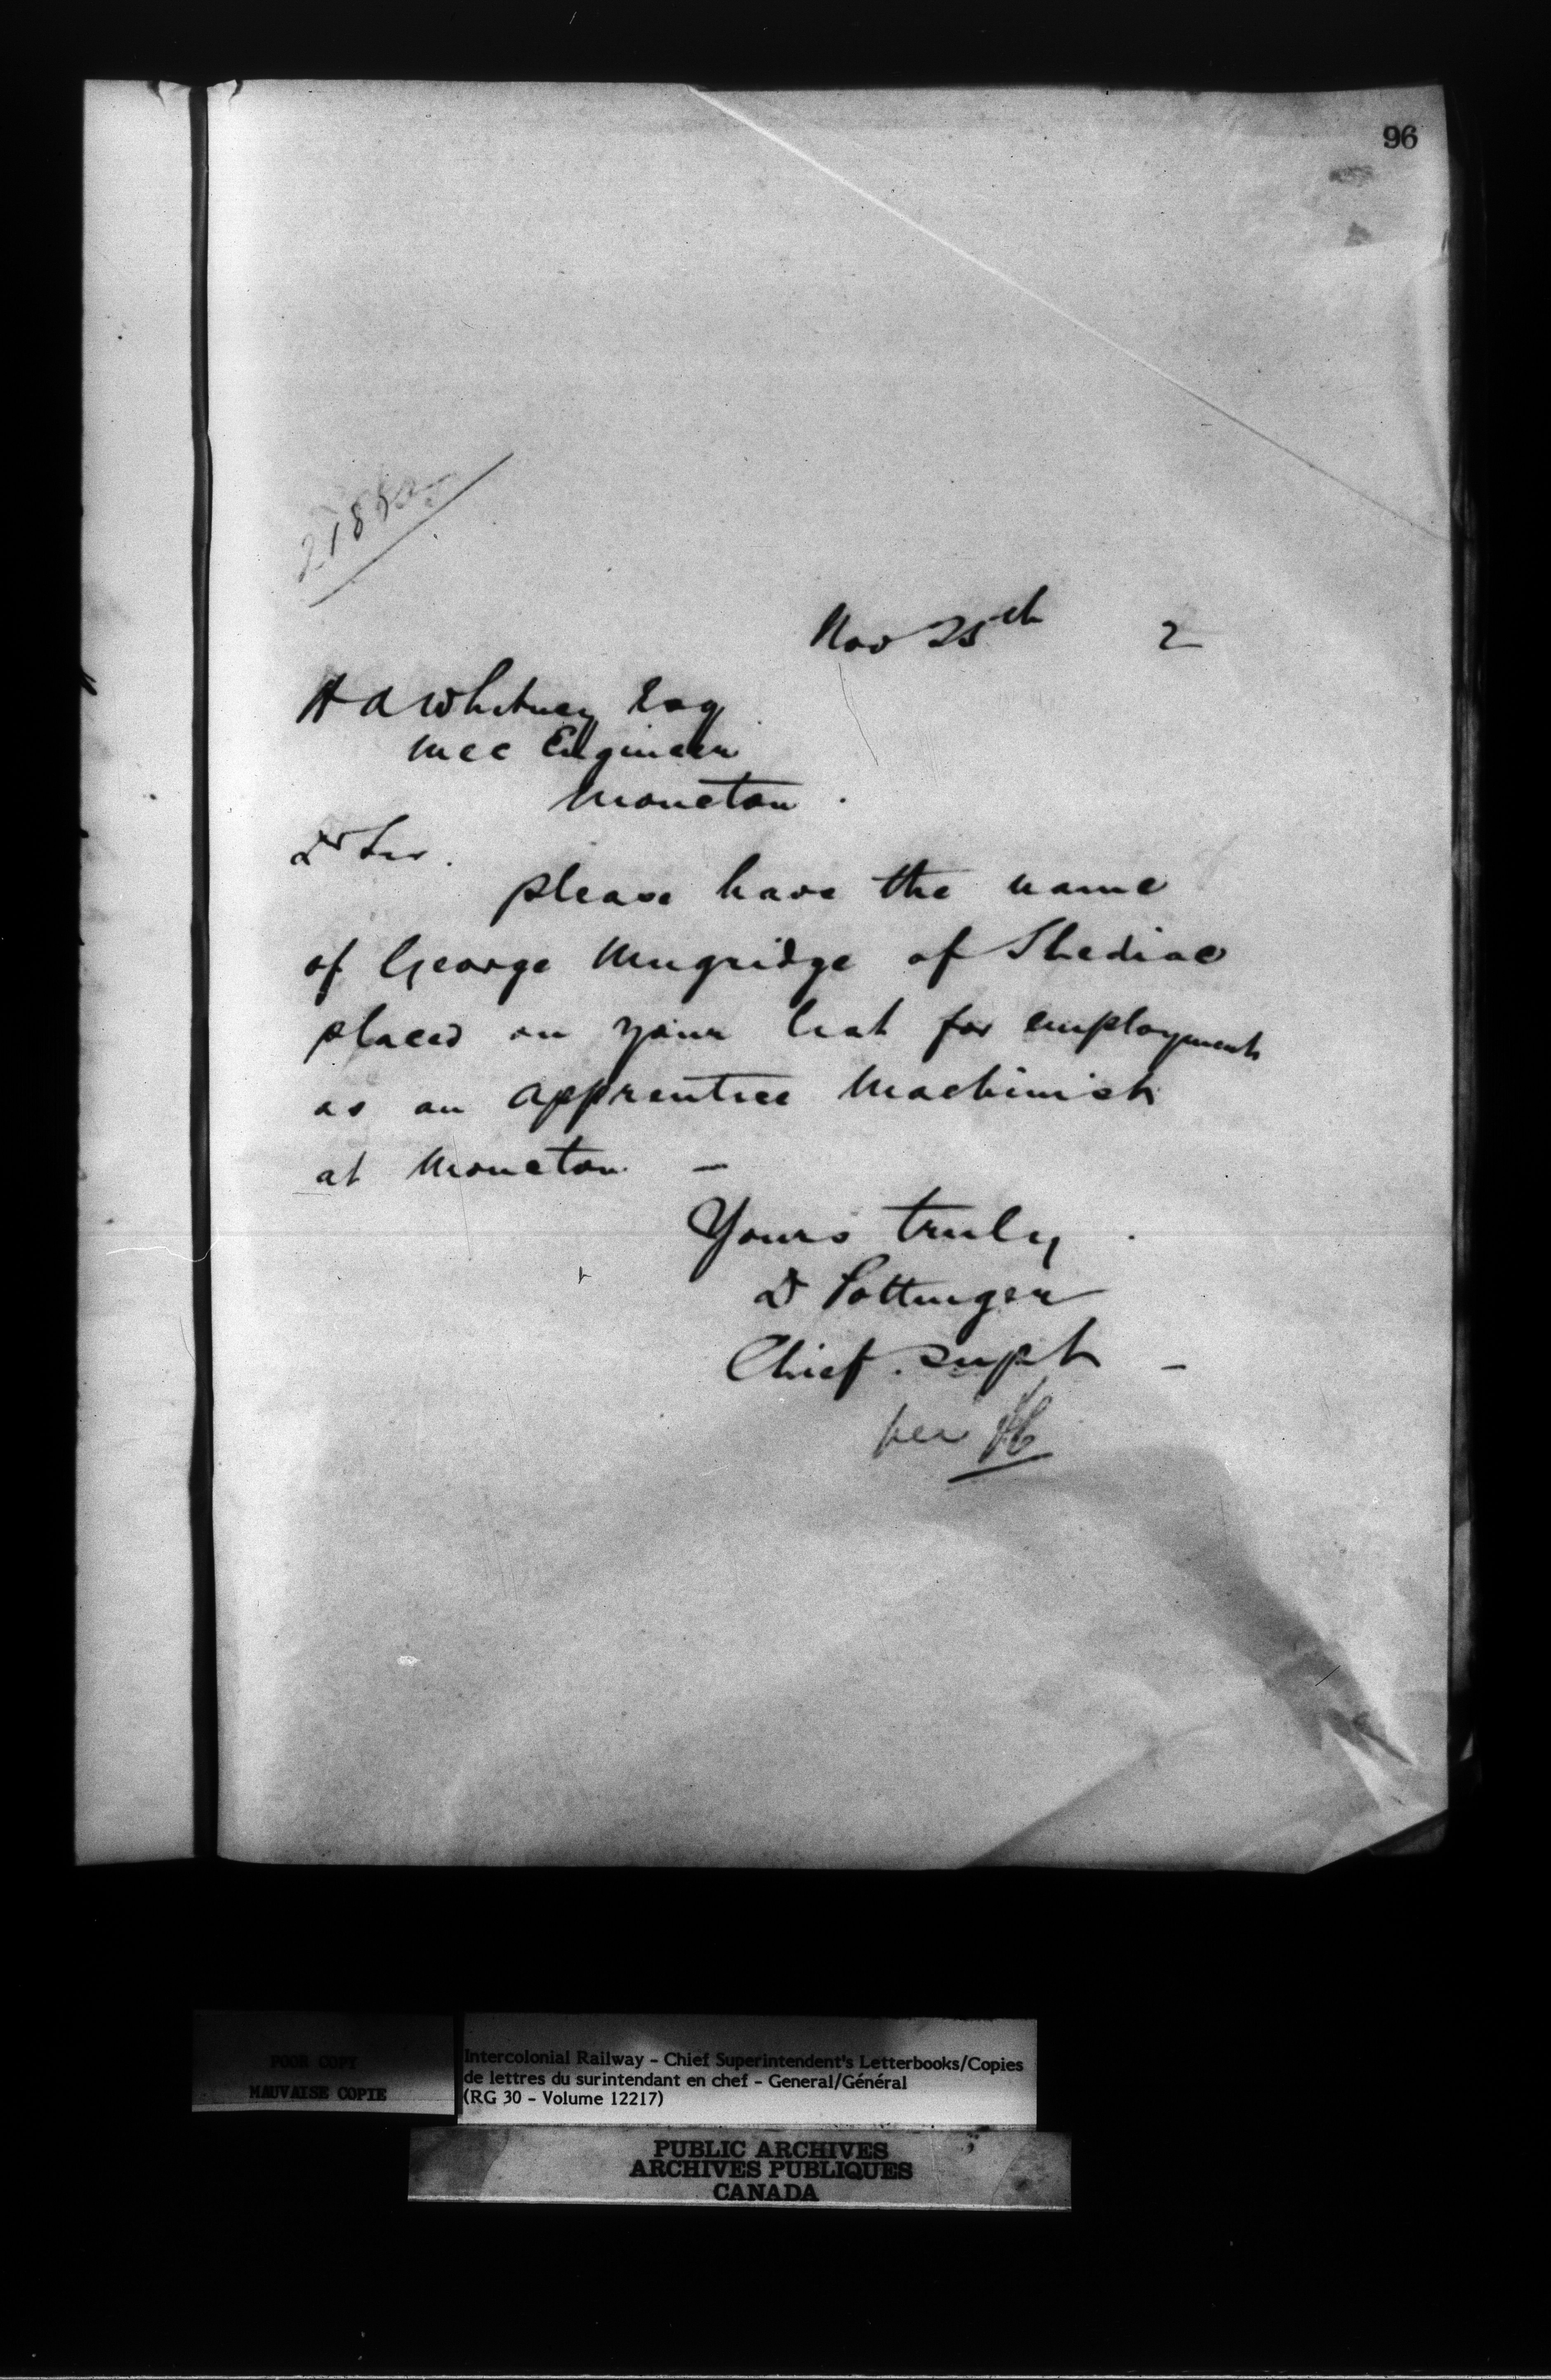 96
Nov 25th 2
H A Whitney Esq
Mec Engineer
Moncton.
Dr Sir.
please have the name
of George Mugridge of Shediac
placed on your list for employment
as an apprentice Machinist
at Moncton. —
Yours truly.
D Pottinger
Chief. Supt —
per
POOR COPY
MAUVAISE COPIE
Intercolonial Railway - Chief Superintendent's Letterbooks/Copies
de lettres du surintendant en chef - General/Général
(RG 30 - Volume 12217)
PUBLIC ARCHIVES
ARCHIVES PUBLIQUES
CANADA